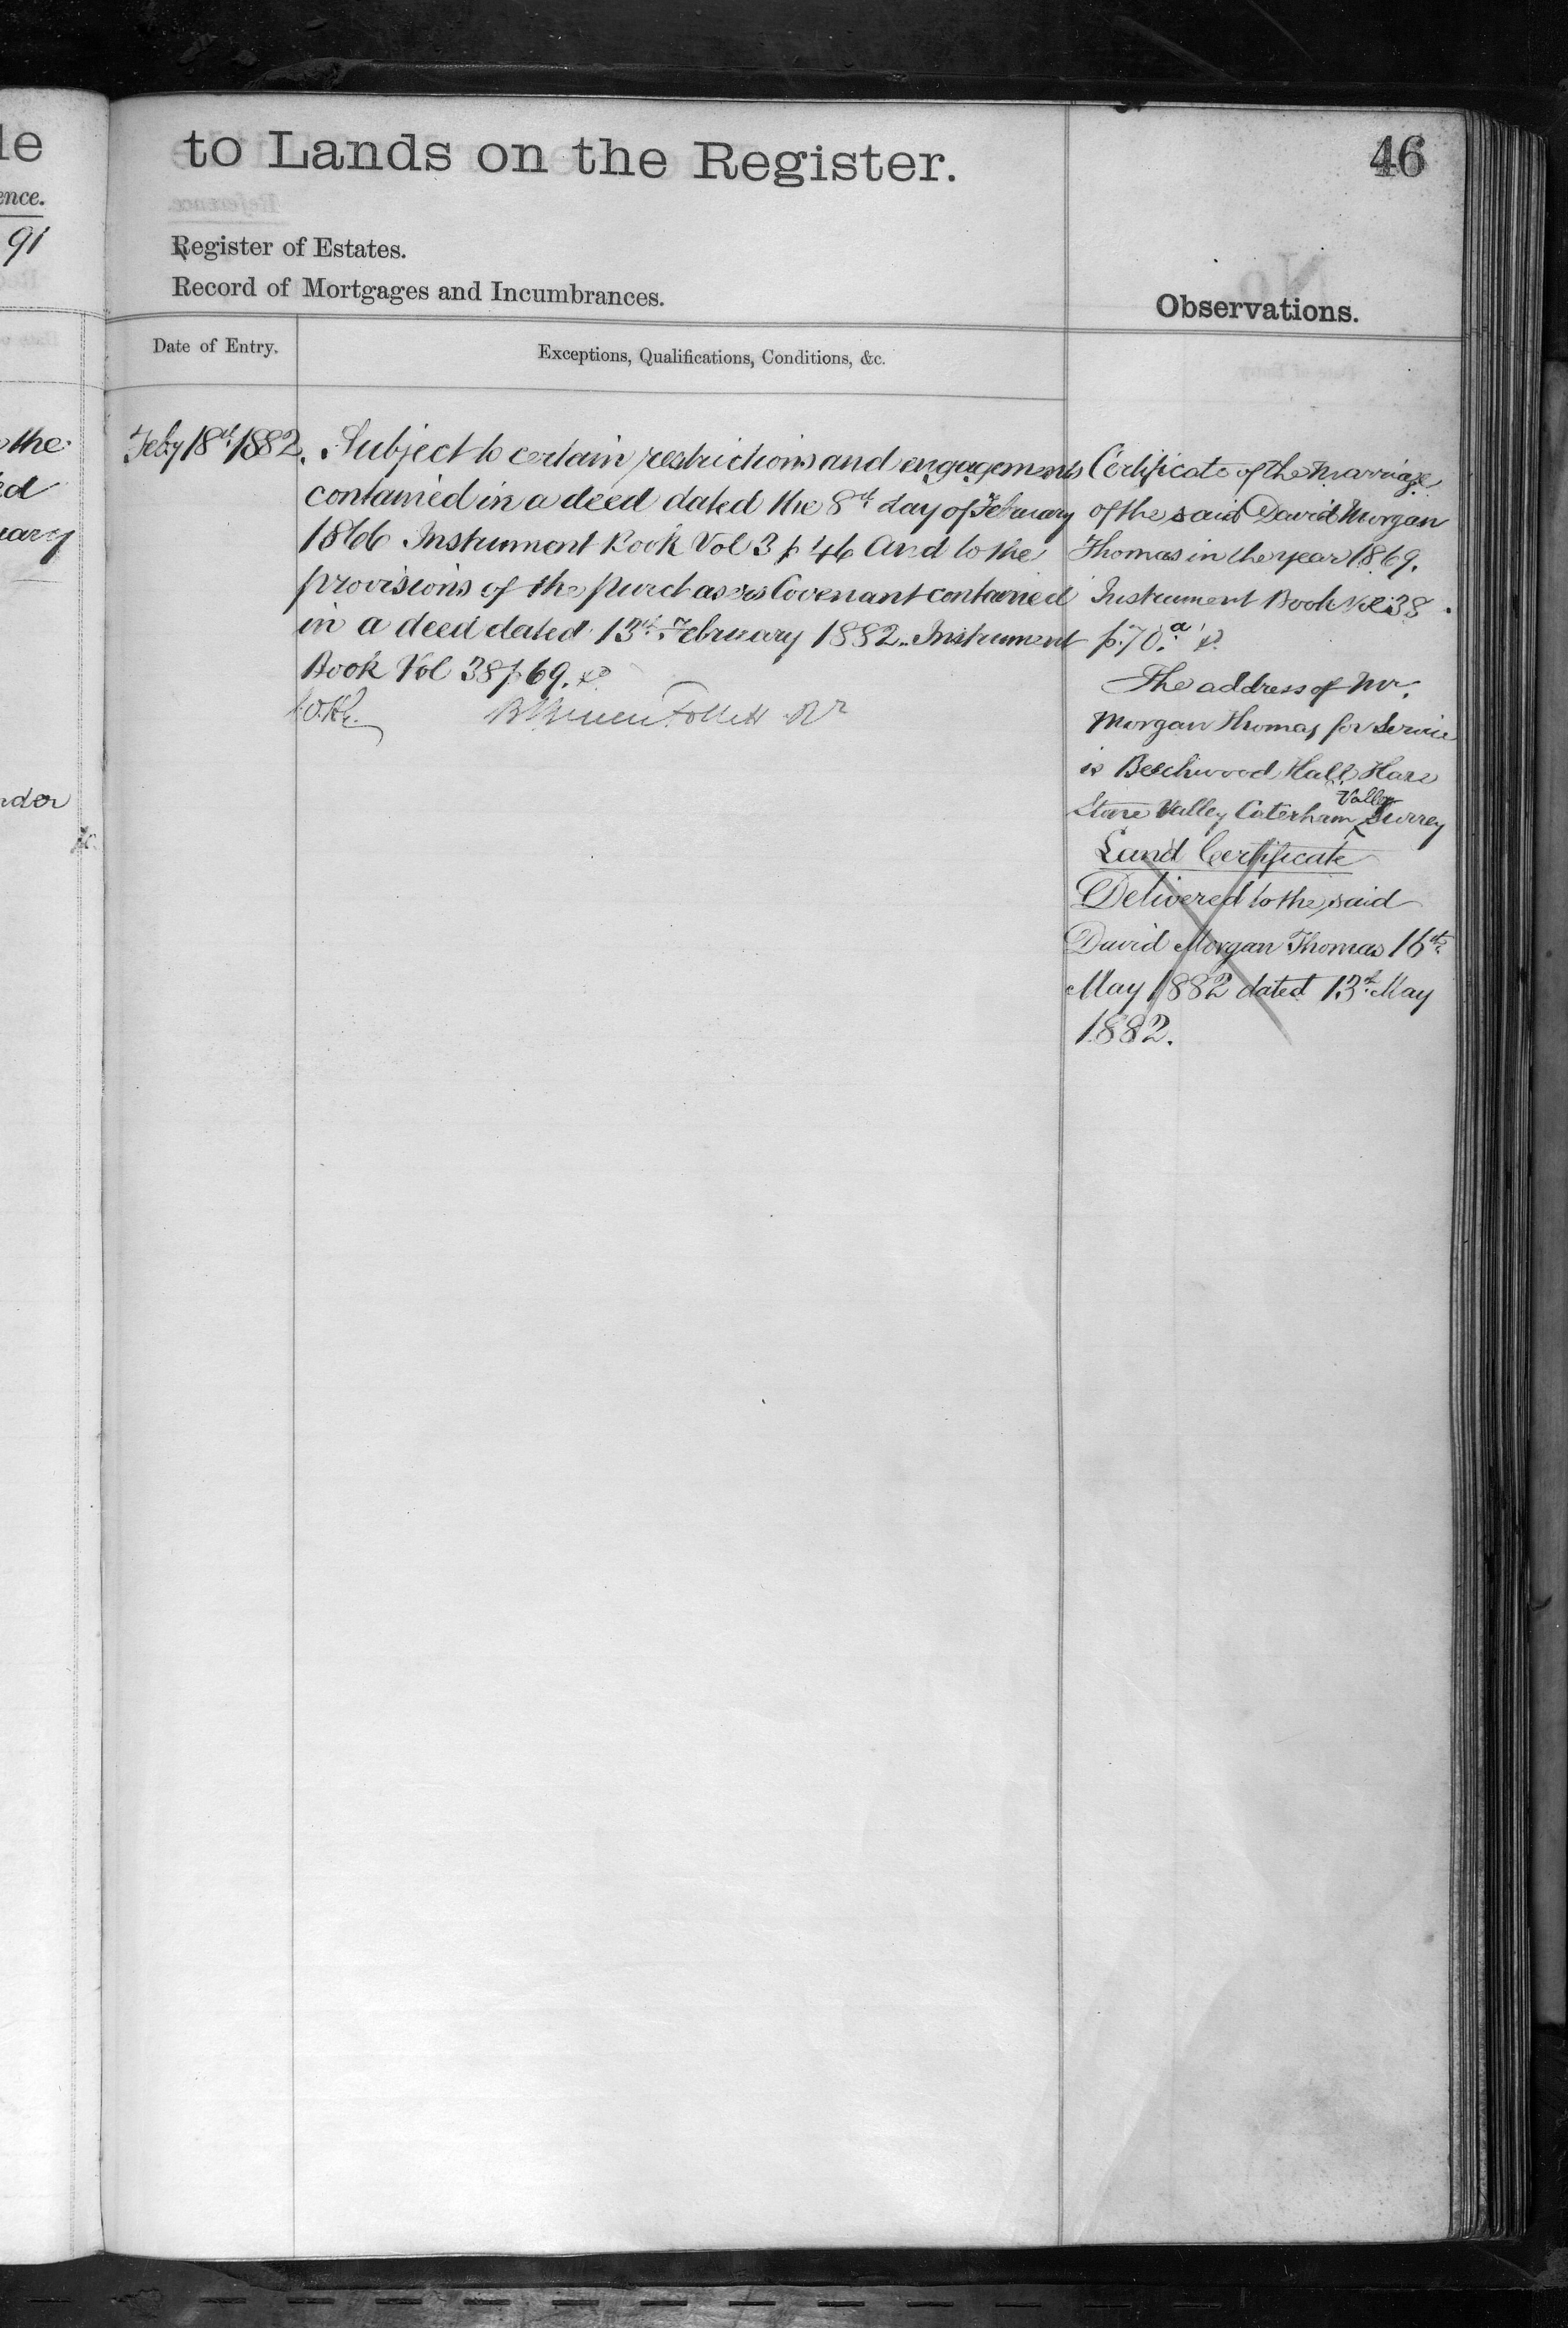 le
ence.
91
the
ed
uary
nder
to Lands on the Register.
46
Register of Estates.
Record of Mortgages and Incumbrances.
Observations.
Date of Entry.
Exceptions, Qualifications, Conditions, &c.
Feby 18th 1882.
Subject to certain restrictions and engagements
contained in a deed dated the 8th day of February
1866 Instrument Book Vol 3 p 46 And to the
provisions of the purchasers Covenant contained
in a deed dated 13th February 1882. Instrument
Book Vol 38 p 69.
Follett Rr
Certificate of the Marriage
of the said David Morgan
Thomas in the year 1869.
Instrument Book Vol 38.
p. 70.a
The address of Mr.
Morgan Thomas for Service
is Beechwood Hall, Hare
Stone Valley Caterham Valley Surrey
Land Certificate
Delivered to the said
David Morgan Thomas 16th
May 1882 dated 13th May
1882.